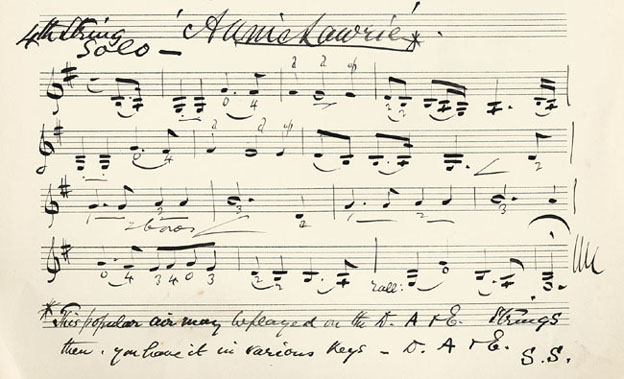 4th String 'Annie Lawrie' *.
Solo —
0 4
2 2
0 4
2 bows
3 2 2 3
0 4 3 4 0 3 2 2 4 rall: 0
* This popular air may be played on the D. A & E. Strings
then. you have it in various keys — D. A & E. S.S.